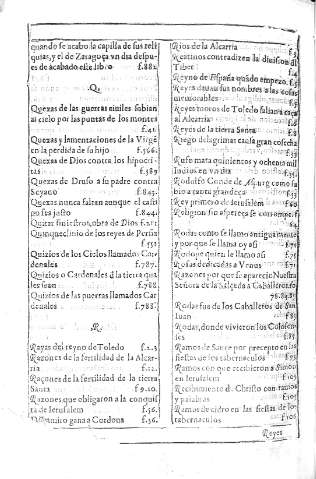 quando se acabo la capilla de sus reli
quias, y el de Zaragoça vn dia despu-
es de acabado este libro f.882.
.Q.
Quexas de las guerras ciuiles sobian
al cielo por las puntas de los montes
f.41.
Quexas y lamentaciones de la Virgē
en la perdida de su hijo f.566.
Quexas de Dios contra los hipocri-
tas f.589
Quexas de Druso a su padre contra
Seyano f.845.
Quexas nunca faltan aunque el casti
go sea justo f.844.
Quitar siniestros, obra de Dios f.231
Quinquenclinio de los reyes de Persia
f.551
Quizios de los Cielos llamados Car-
denales f.787.
Quizios o Cardenales d̄ la tierra qua
les sean f.788.
Quizios de las puertas llamados Car
denales f.788.
.R.
Rayas del reyno de Toledo f.2.3.
Razones de la fertilidad de la Alcar-
ria f.12.
Razones de la fertilidad de la tierra
Santa f.9.10.
Razones que obligaron a la conquis
ta de Jerusalem f.56.
gana a Cordoua f.36.
Rios de la Alcarria
contradizen la diuision de
Tiber
Reyno de España quādo empeço. f.5
Reyes dauan sus nombres a las cosas
memorables f.5
Reyes moros de Toledo
al Alcarria
Reyes de la tierra Santa f.8
Riego de lagrimas causa gran cosecha
f.33
Rufo mata quinientos y ochenta mil
Iudios en vn dia
Rodolfo Conde de como sa
bio a tanta grandeza f.59
Rey primero de Jerusalem f.60
Religion
f.64.
Rodas como se llamo antiguamente
y por que se llamo oy asi
Rodope quien se llamo asi f.71
Rosas dedicadas a Venus f.71
Razones por que se aparecio Nuestra
Señora de la Salceda a Caualleros.fo.
76.84.85
Rodas fue de los Caballeros de San
Iuan f.83
Rodas, donde viuieron los Colosen-
ses f.83
Ramos de Sauce por precepto en las
fiestas de los tabernaculos f.93
Ramos con que recibieron a
en Jerusalem f.103
Recibimiento d̄ Christo con ramos
y palabras f.105
Ramos de cidro en las fiestas de los
tabernaculos f.106
Reyes